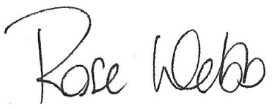 Rose Webb